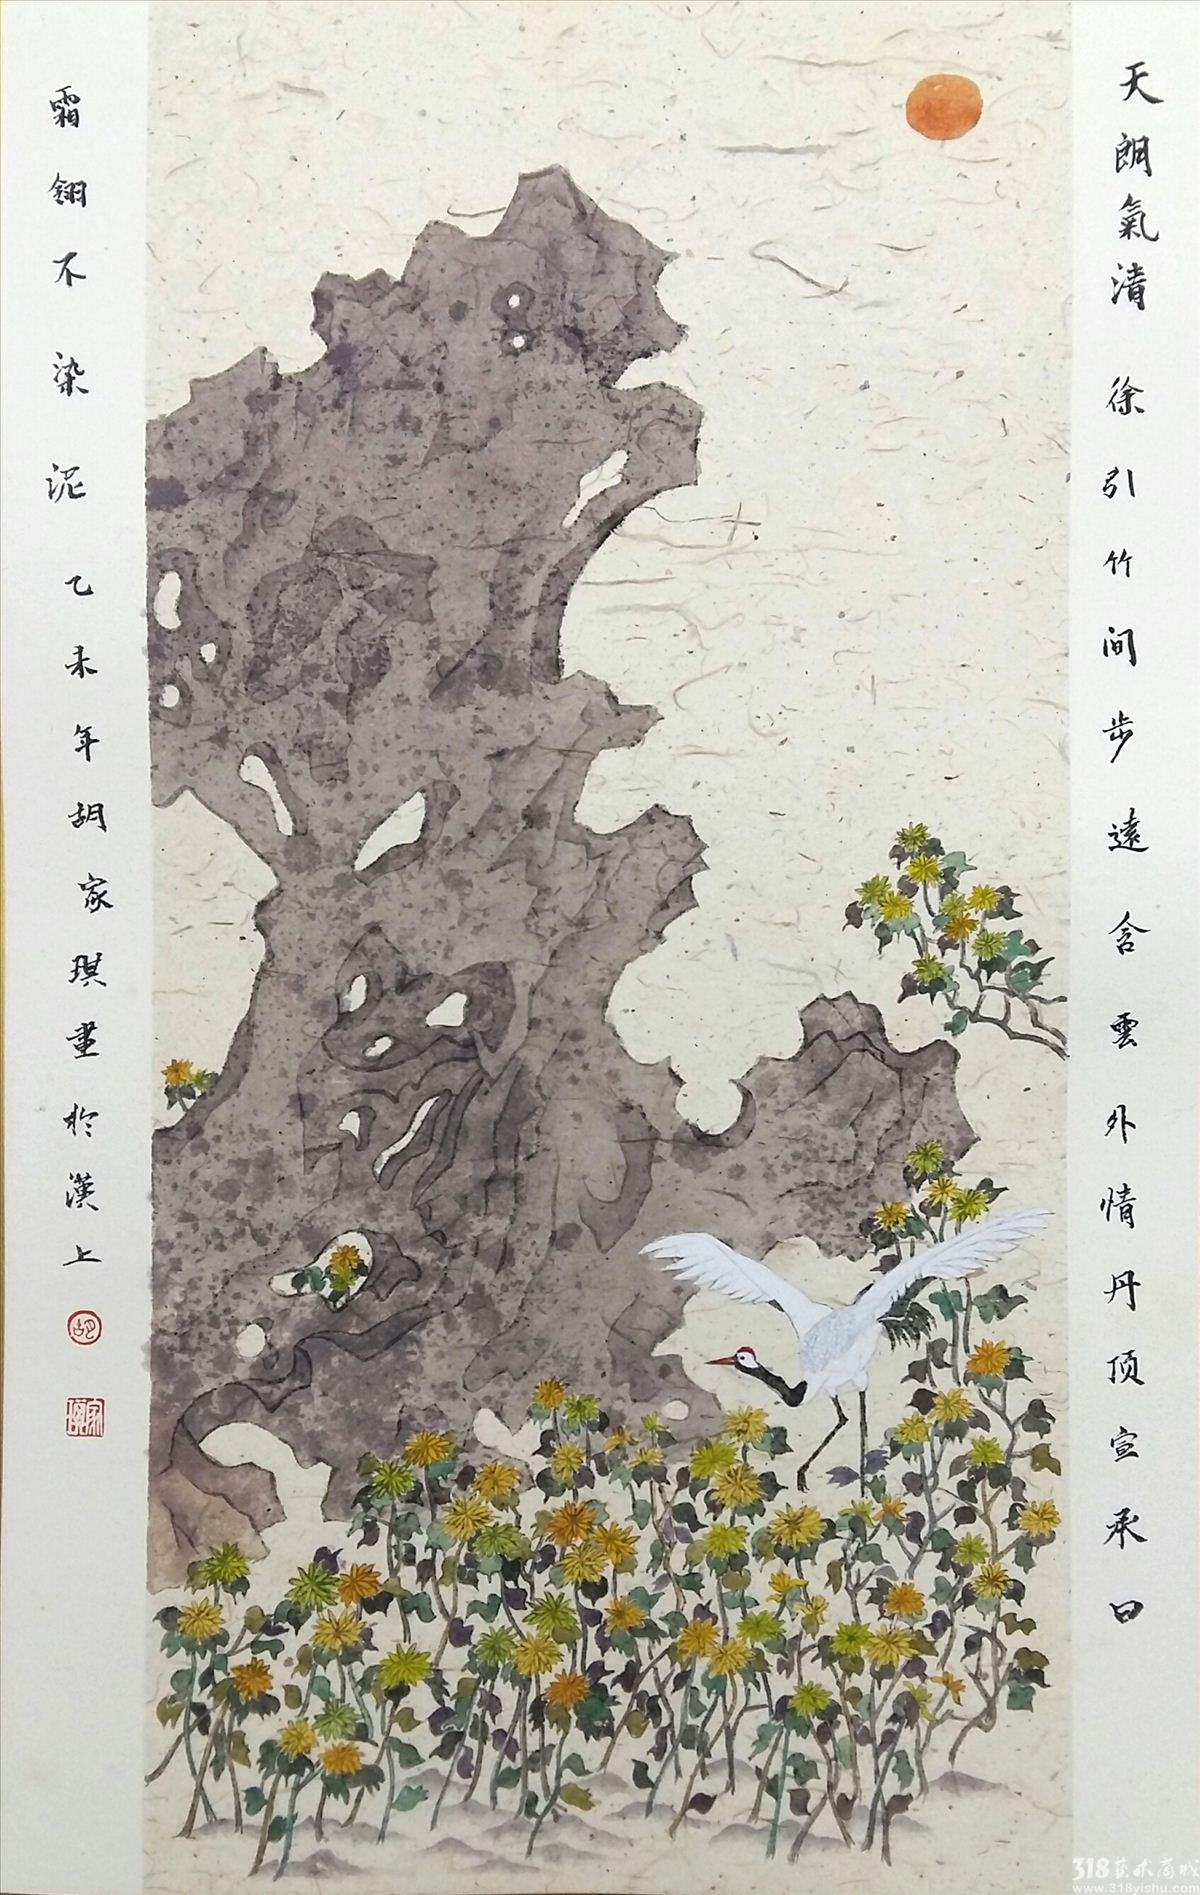 天朗氣清徐引竹间步遠含雲外情丹顶宣承日
霜翎不染泥乙未年胡家琪畫於漢上
胡
318艺术商城
www.318yishu.com